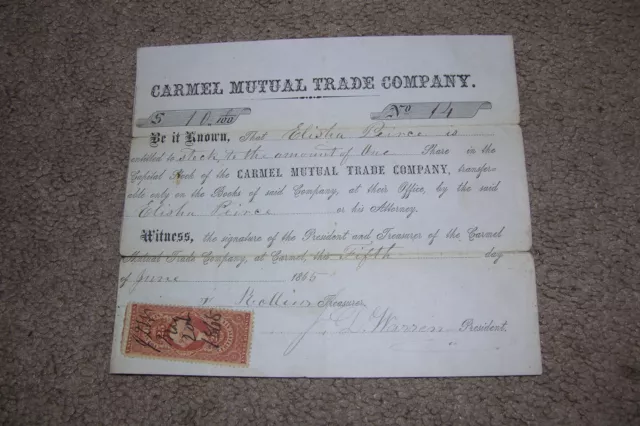 CARMEL MUTUAL TRADE COMPANY.
$ 10 /100 No 14
Be it Known, That Elisha Peirce is
entitled to stock to the amount of One Share in the
Capital Stock of the CARMEL MUTUAL TRADE COMPANY, transfer-
able only on the Books of said Company, at their Office, by the said
Elisha Peirce or his Attorney.
Witness, the signature of the President and Treasurer of the Carmel
Mutual Trade Company, at Carmel, this Fifth day
of June 1865
Rollins Treasurer
J. L. Warren President.